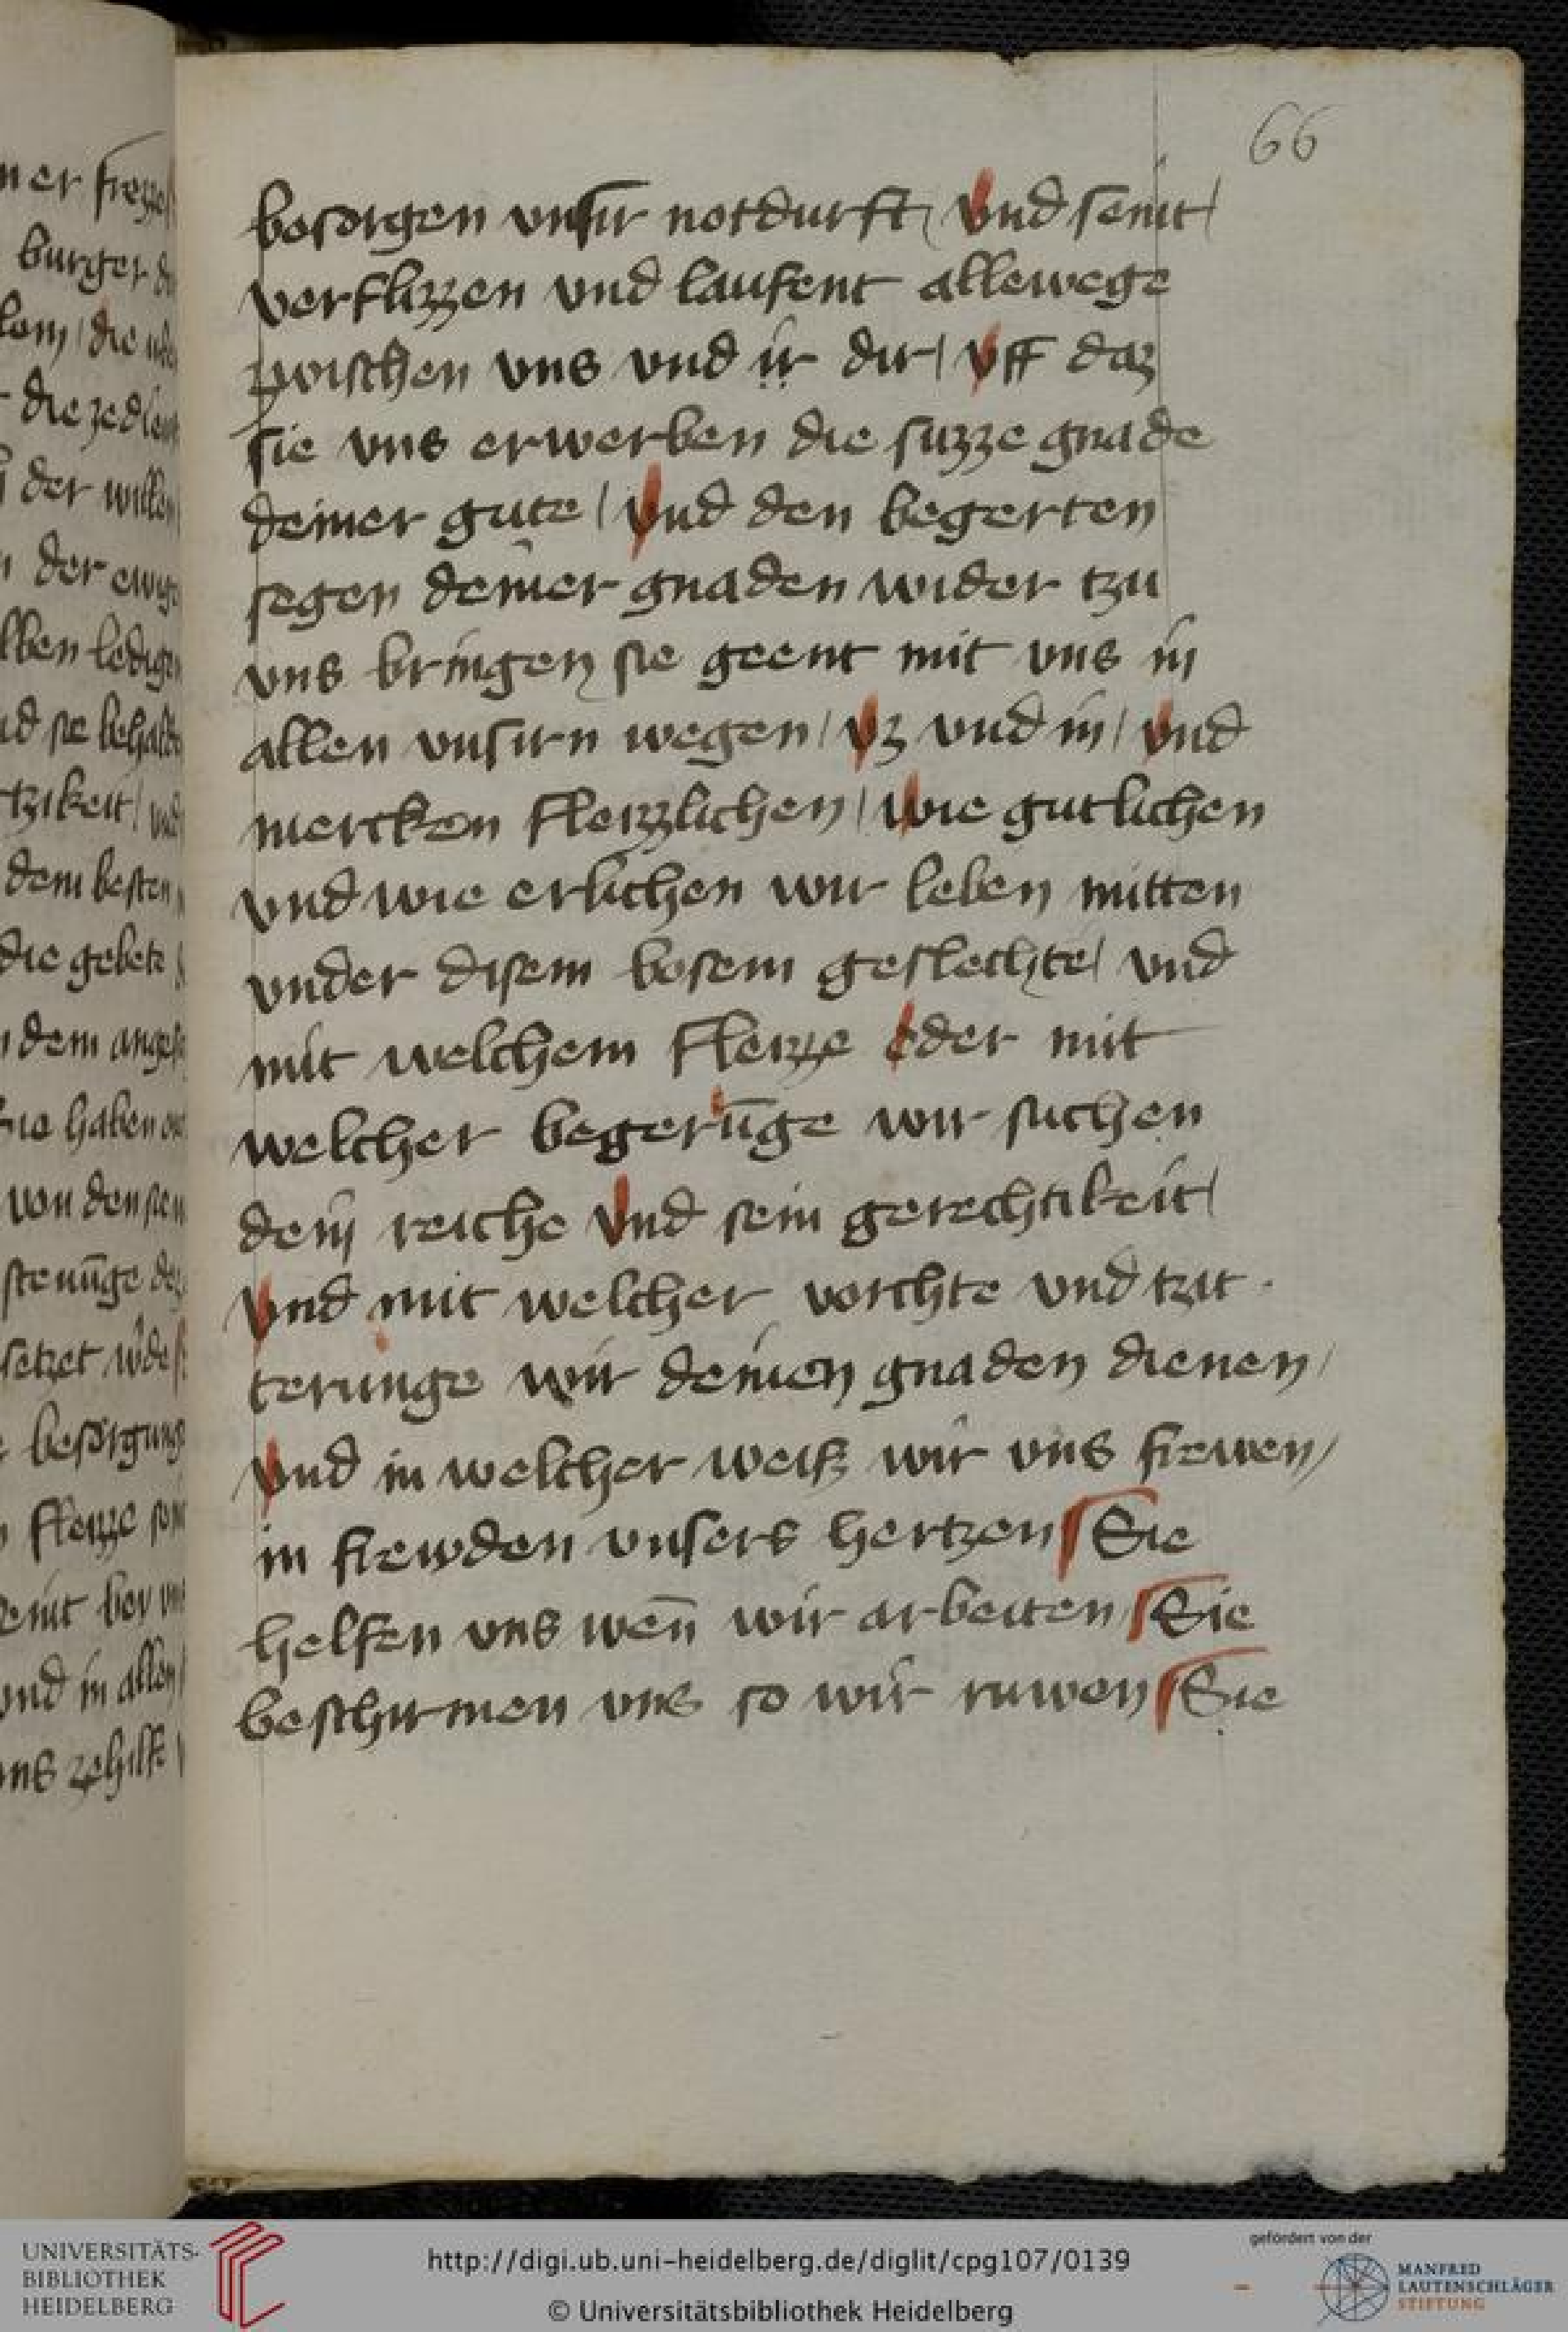 66
besorgen vnsir notdurft / vnd seint /
verflizzen vnd laufent allewege
zwischen vns vnd ir dir / vff daz
sie vns erwerben die suzze gnade
deiner gute / vnd den begerten
segen deiner gnaden wider tzu
vns bringen sie geent mit vns in
allen vnsirn wegen / vz vnd in / vnd
mercken fleizzlichen / wie gutlichen
vnd wie erlichen wir leben mitten
vnder disem bosem geslechte / vnd
mit welchem fleizze oder mit
welcher begerūge wir suchen
dein reiche vnd sein gerechtikeit /
vnd mit welcher vorchte vnd tzit
terunge wir deinen gnaden dienen /
vnd in welcher weiss wir vns frewen /
in frewden vnsers hertzen Sie
helfen vns wen̄ wir arbeiten Sie
beschirmen vns so wir ruwen Sie
ner
burger
die
der
der ewige
dem besten
die gebete
dem
haben
von den
vnd in allen
UNIVERSITÄTS-
BIBLIOTHEK
HEIDELBERG
http://digi.ub.uni-heidelberg.de/diglit/cpg107/0139
© Universitätsbibliothek Heidelberg
gefördert von der
MANFRED
LAUTENSCHLÄGER
STIFTUNG